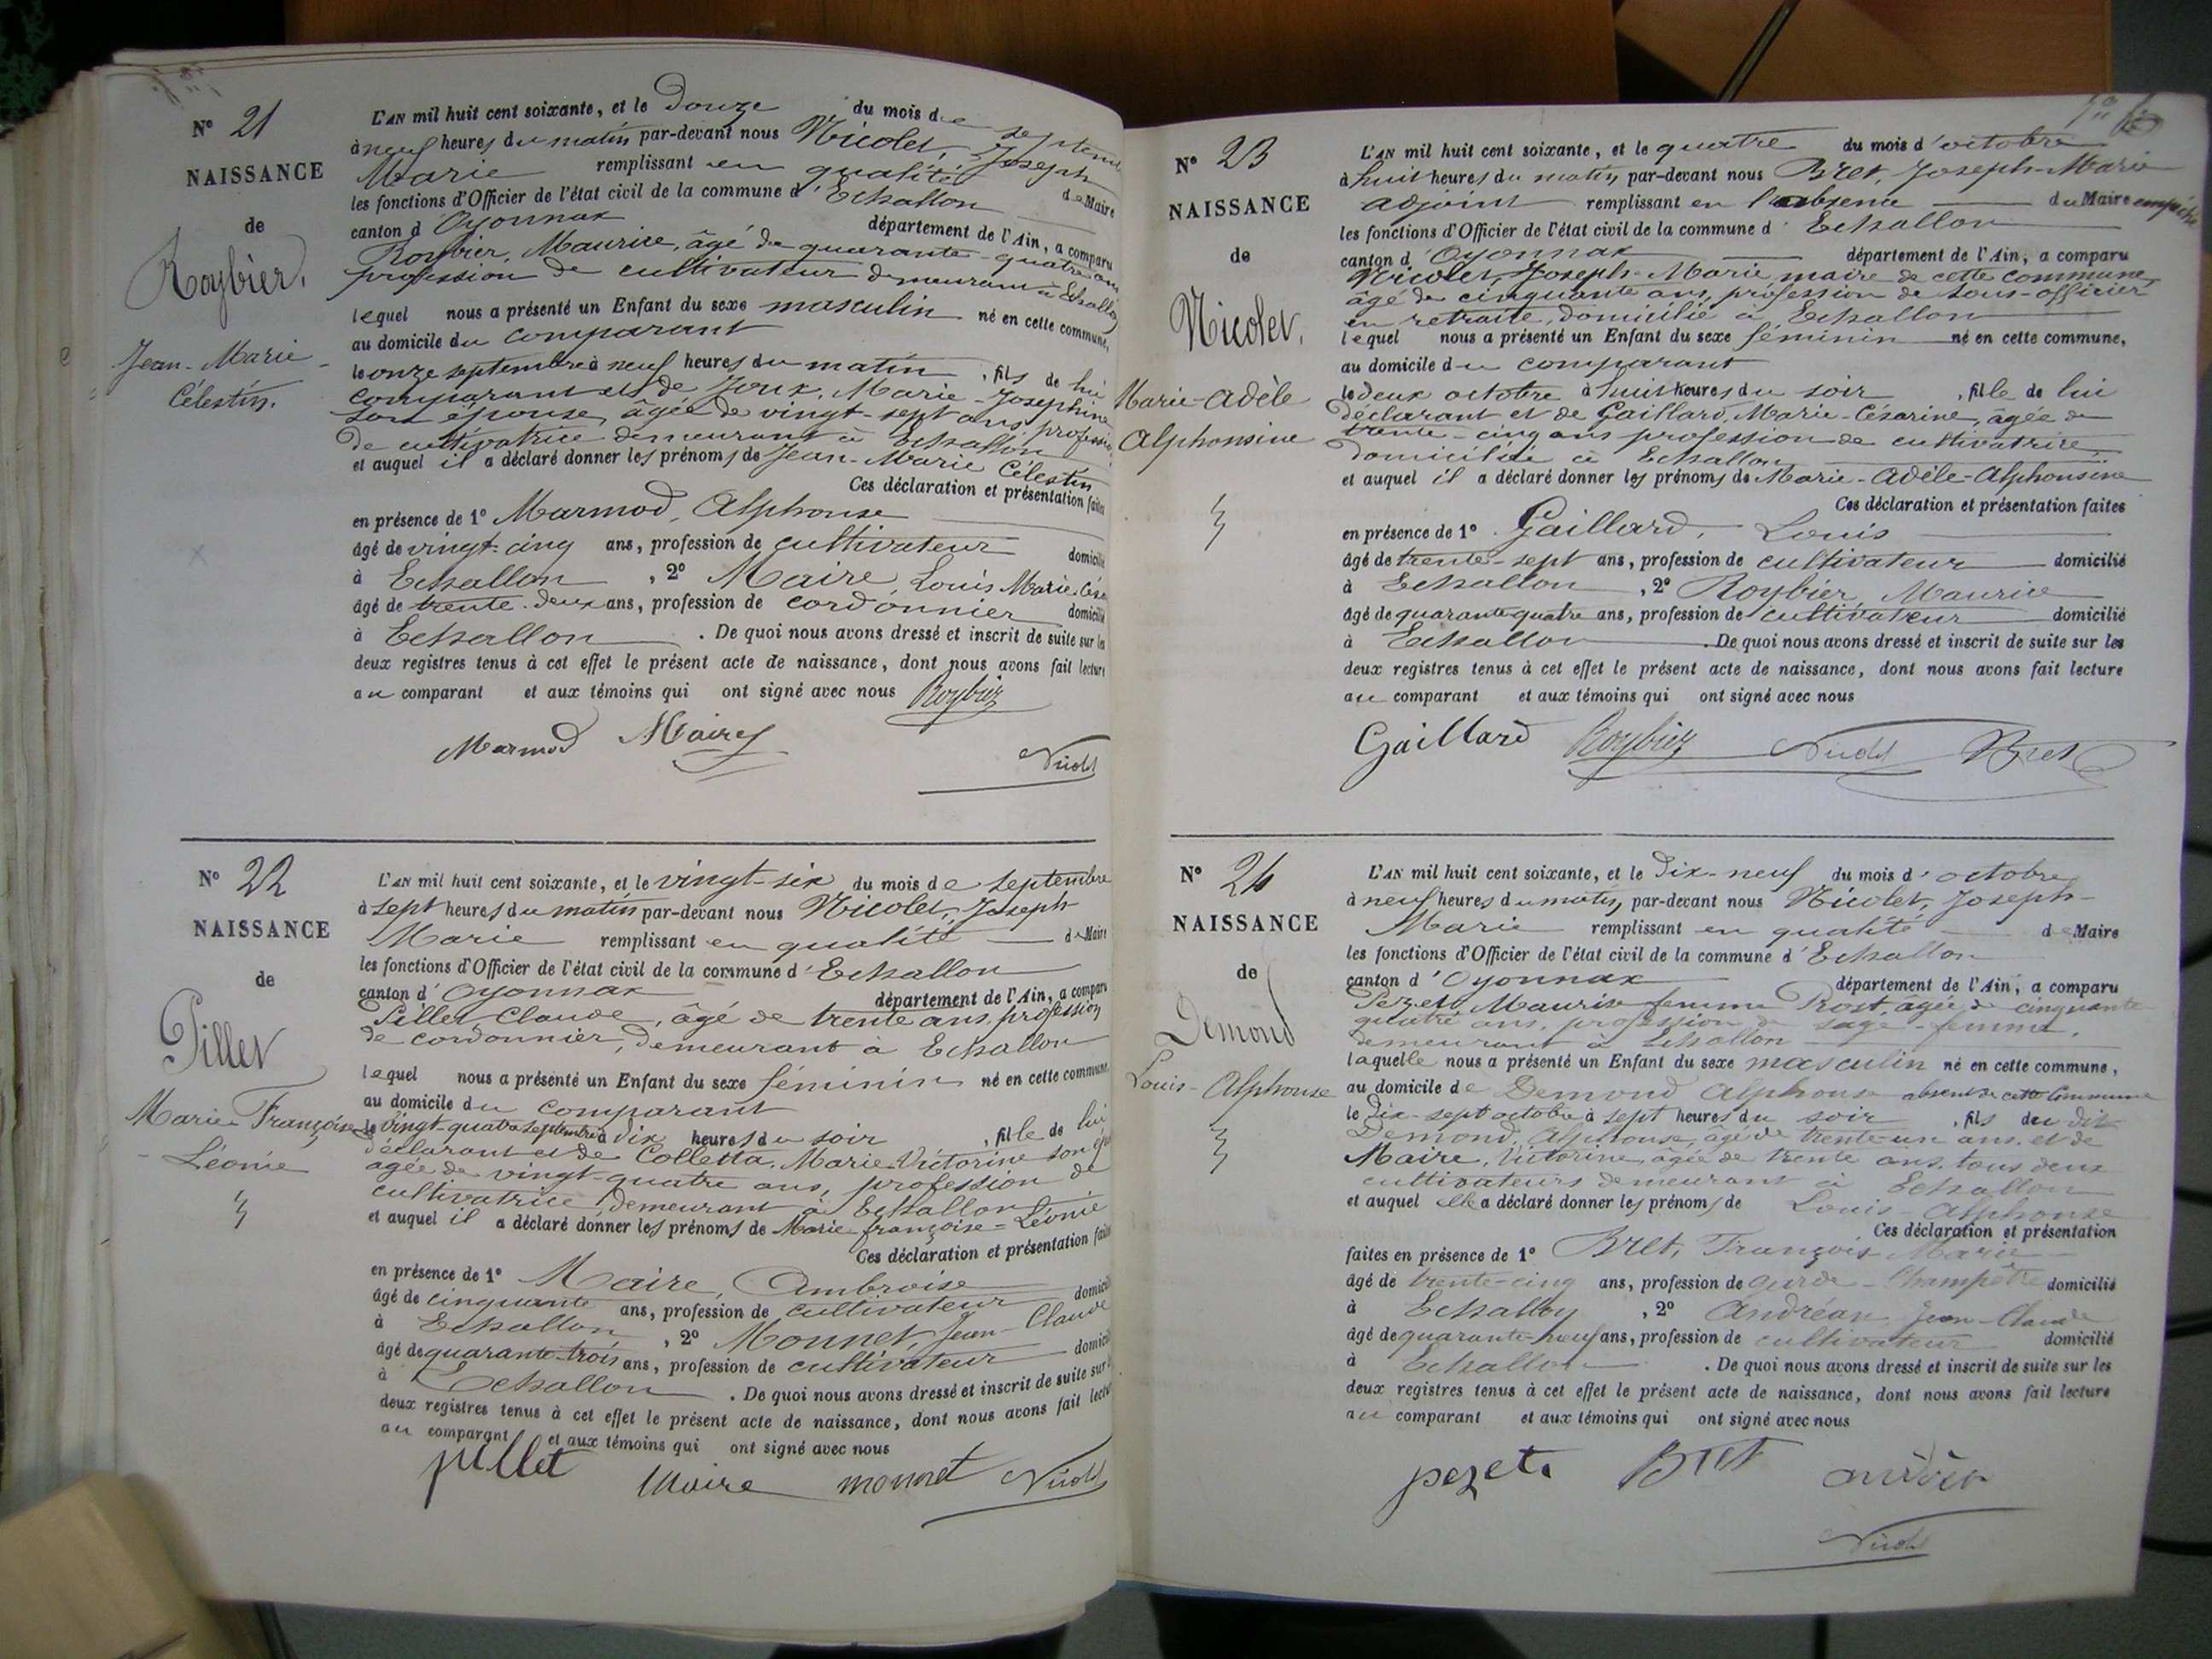 N° 21
NAISSANCE
de
Roybier,
Jean-Marie
Célestin.
L'AN mil huit cent soixante, et le Douze du mois de septem
à neuf heures du matin par-devant nous Nicolet, Joseph
Marie remplissant en qualité de Maire
les fonctions d'Officier de l'état civil de la commune d'Echallon
canton d'Oyonnax département de l'Ain, a comparu
Roybier, Maurice, âgé de quarante-quatre ans
profession de cultivateur demeurant à Echallon
lequel nous a présenté un Enfant du sexe masculin né en cette commune,
au domicile du comparant
le onze septembre à neuf heures du matin, fils de lui
comparant et de Joux, Marie-Josephine
son épouse, âgée de vingt-sept ans profession
de cultivatrice demeurant à Echallon
et auquel il a déclaré donner les prénoms de Jean-Marie Célestin
Ces déclaration et présentation faites
en présence de 1° Marmod, Alphonse
âgé de vingt-cinq ans, profession de cultivateur domicilié
à Echallon, 2° Maire, Louis Marie
âgé de trente-deux ans, profession de cordonnier domicilié
à Echallon. De quoi nous avons dressé et inscrit de suite sur les
deux registres tenus à cet effet le présent acte de naissance, dont nous avons fait lecture
au comparant et aux témoins qui ont signé avec nous Roybier
Marmod Maire Nicolet
N° 22
NAISSANCE
de
Pillet
Marie Françoise
Léonie
L'AN mil huit cent soixante, et le vingt-six du mois de septembre
à sept heures du matin par-devant nous Nicolet, Joseph
Marie remplissant en qualité de Maire
les fonctions d'Officier de l'état civil de la commune d'Echallon
canton d'Oyonnax département de l'Ain, a comparu
Pillet Claude, âgé de trente ans, profession
de cordonnier, demeurant à Echallon
lequel nous a présenté un Enfant du sexe féminin né en cette commune,
au domicile du comparant
le vingt-quatre septembre à dix heures du soir, fille de lui
déclarant et de Colletta, Marie Victorine son ép
agée de vingt-quatre ans, profession de
cultivatrice, demeurant à Echallon
et auquel il a déclaré donner les prénoms de Marie françoise-Léonie
Ces déclaration et présentation faites
en présence de 1° Maire, Ambroise
âgé de cinquante ans, profession de cultivateur domicilié
à Echallon, 2° Monnet, Jean-Claude
âgé de quarante-trois ans, profession de cultivateur domicilié
à Echallon. De quoi nous avons dressé et inscrit de suite sur les
deux registres tenus à cet effet le présent acte de naissance, dont nous avons fait lecture
au comparant et aux témoins qui ont signé avec nous
pillet Maire monnet Nicolet
N° 23
NAISSANCE
de
Nicolet,
Marie-Adèle
Alphonsine
L'AN mil huit cent soixante, et le quatre du mois d'octobre
à huit heures du matin par-devant nous Bret, Joseph-Marie
adjoint remplissant en l'absence du Maire empêché
les fonctions d'Officier de l'état civil de la commune d'Echallon
canton d'Oyonnax département de l'Ain, a comparu
Nicolet, Joseph-Marie, maire de cette commune,
âgé de cinquante ans, profession de sous-officier
en retraite, domicilié à Echallon
lequel nous a présenté un Enfant du sexe féminin né en cette commune,
au domicile du comparant
le deux octobre à huit heures du soir, fille de lui
déclarant et de Gaillard, Marie-Césarine, âgée de
trente-cinq ans profession de cultivatrice,
domiciliée à Echallon
et auquel il a déclaré donner les prénoms de Marie-Adèle-Alphonsine
Ces déclaration et présentation faites
en présence de 1° Gaillard, Louis
âgé de trente-sept ans, profession de cultivateur domicilié
à Echallon, 2° Roybier, Maurice
âgé de quarante quatre ans, profession de cultivateur domicilié
à Echallon. De quoi nous avons dressé et inscrit de suite sur les
deux registres tenus à cet effet le présent acte de naissance, dont nous avons fait lecture
au comparant et aux témoins qui ont signé avec nous
Gaillard Roybier Nicolet Bret
N° 24
NAISSANCE
de
Demond
Louis-Alphonse
L'AN mil huit cent soixante, et le Dix-neuf du mois d'octobre
à neuf heures du matin, par-devant nous Nicolet, Joseph-
Marie remplissant en qualité de Maire
les fonctions d'Officier de l'état civil de la commune d'Echallon
canton d'Oyonnax département de l'Ain, a comparu
Pezet, Maurise femme Prost, agée de cinquante
quatre ans, profession de sage-femme,
demeurant à Echallon
laquelle nous a présenté un Enfant du sexe masculin né en cette commune,
au domicile de Demond Alphonse absent de cette Commune
le Dix-sept octobre à sept heures du soir, fils du dit
Demond, Alphonse, âgé de trente-un ans, et de
Maire, Victorine, âgée de trente ans, tous deux
cultivateurs demeurant à Echallon
et auquel elle a déclaré donner les prénoms de Louis-Alphonse
Ces déclaration et présentation
faites en présence de 1° Bret, François Marie
âgé de trente-cinq ans, profession de garde-Champêtre domicilié
à Echallon, 2° Andréan Jean-Claude
âgé de quarante-neuf ans, profession de cultivateur domicilié
à Echallon. De quoi nous avons dressé et inscrit de suite sur les
deux registres tenus à cet effet le présent acte de naissance, dont nous avons fait lecture
au comparant et aux témoins qui ont signé avec nous
pezet Bret
Nicolet